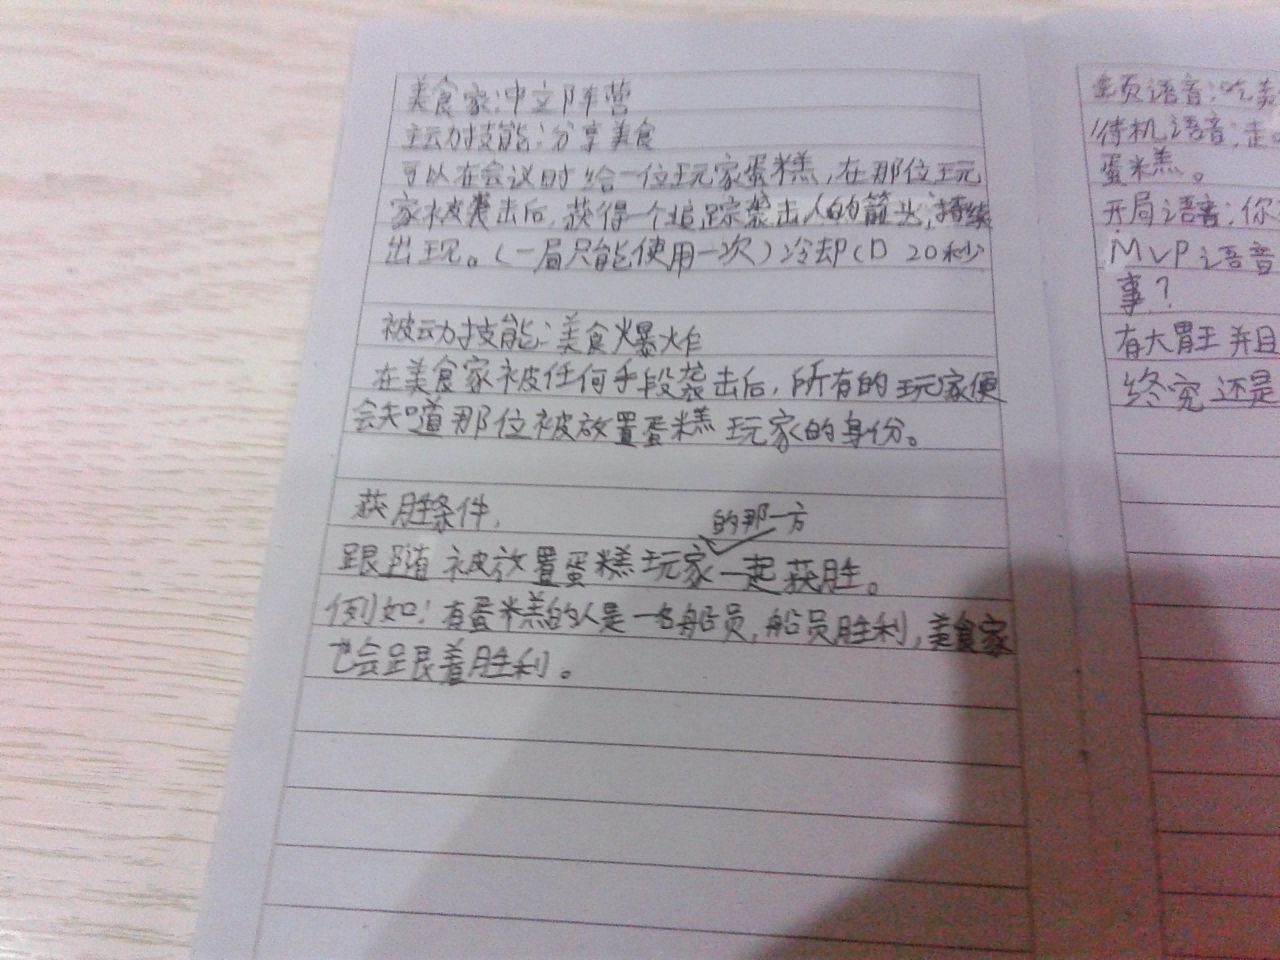 美食家:中立阵营
主动技能:分享美食
可以在会议时给一位玩家蛋糕,在那位玩
家被袭击后,获得一个追踪袭击人的箭头,持续
出现。(一局只能使用一次)冷却CD 20秒
被动技能:美食爆炸
在美食家被任何手段袭击后,所有的玩家便
会知道那位被放置蛋糕玩家的身份。
获胜条件,
的那一方
跟随被放置蛋糕玩家一起获胜。
例如:有蛋糕的人是一名船员,船员胜利,美食家
也会跟着胜利。
主页语音:吃
待机语音:走
蛋糕。
开局语音:你
MVP语音
事?
有大胃王并且
终究还是